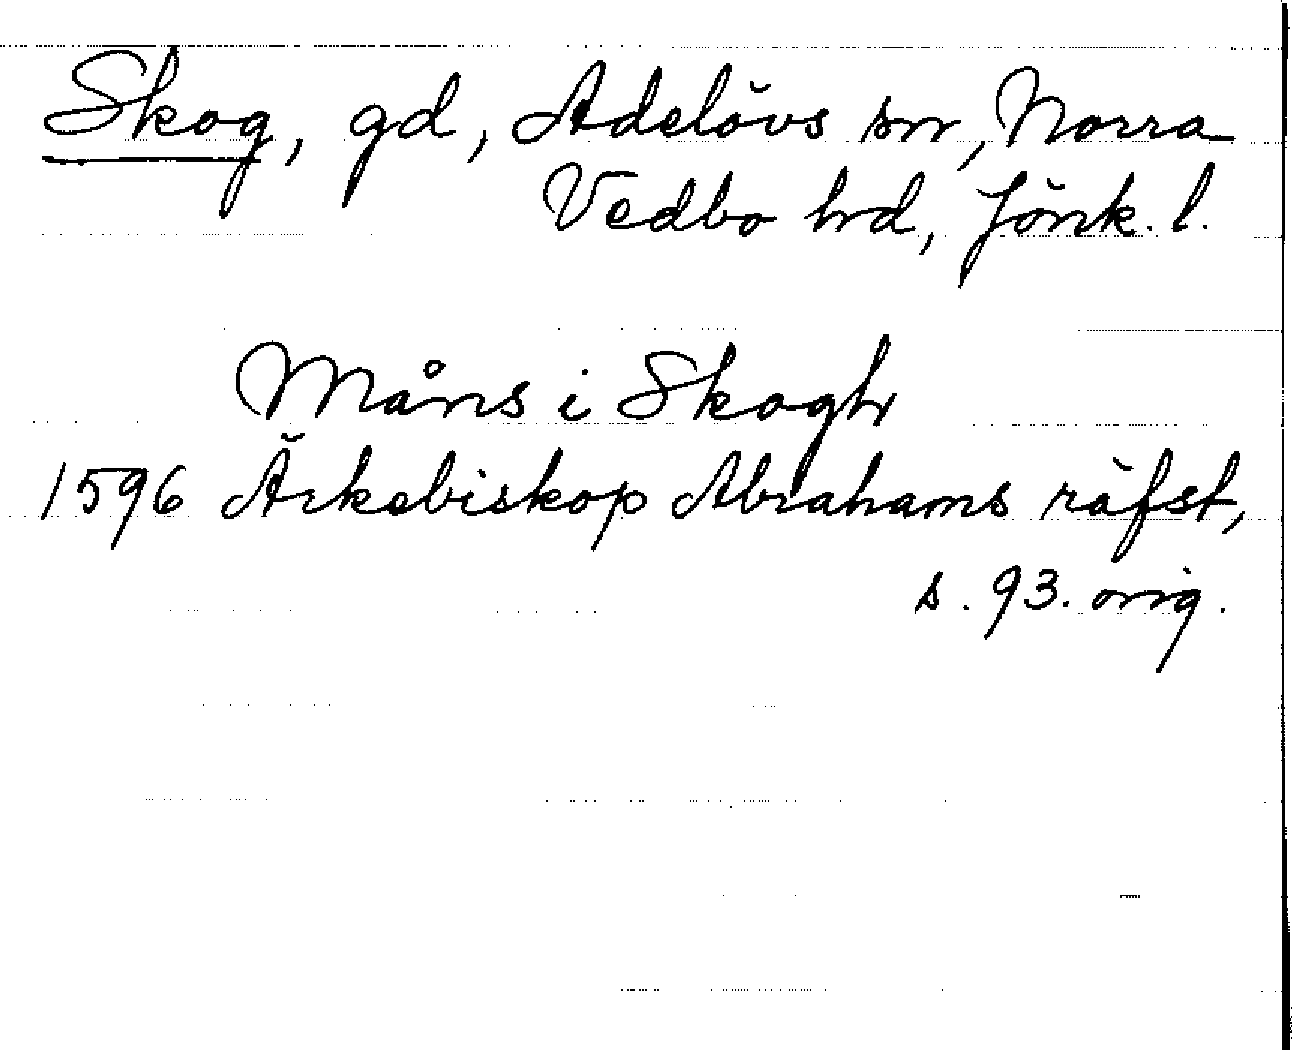 Skog, gd, Adelövs sn, Norra
Vedbo hrd, Jönk. l.
Måns i Skogh
1596 Ärkebiskop Abrahams räfst,
s. 93. orig.